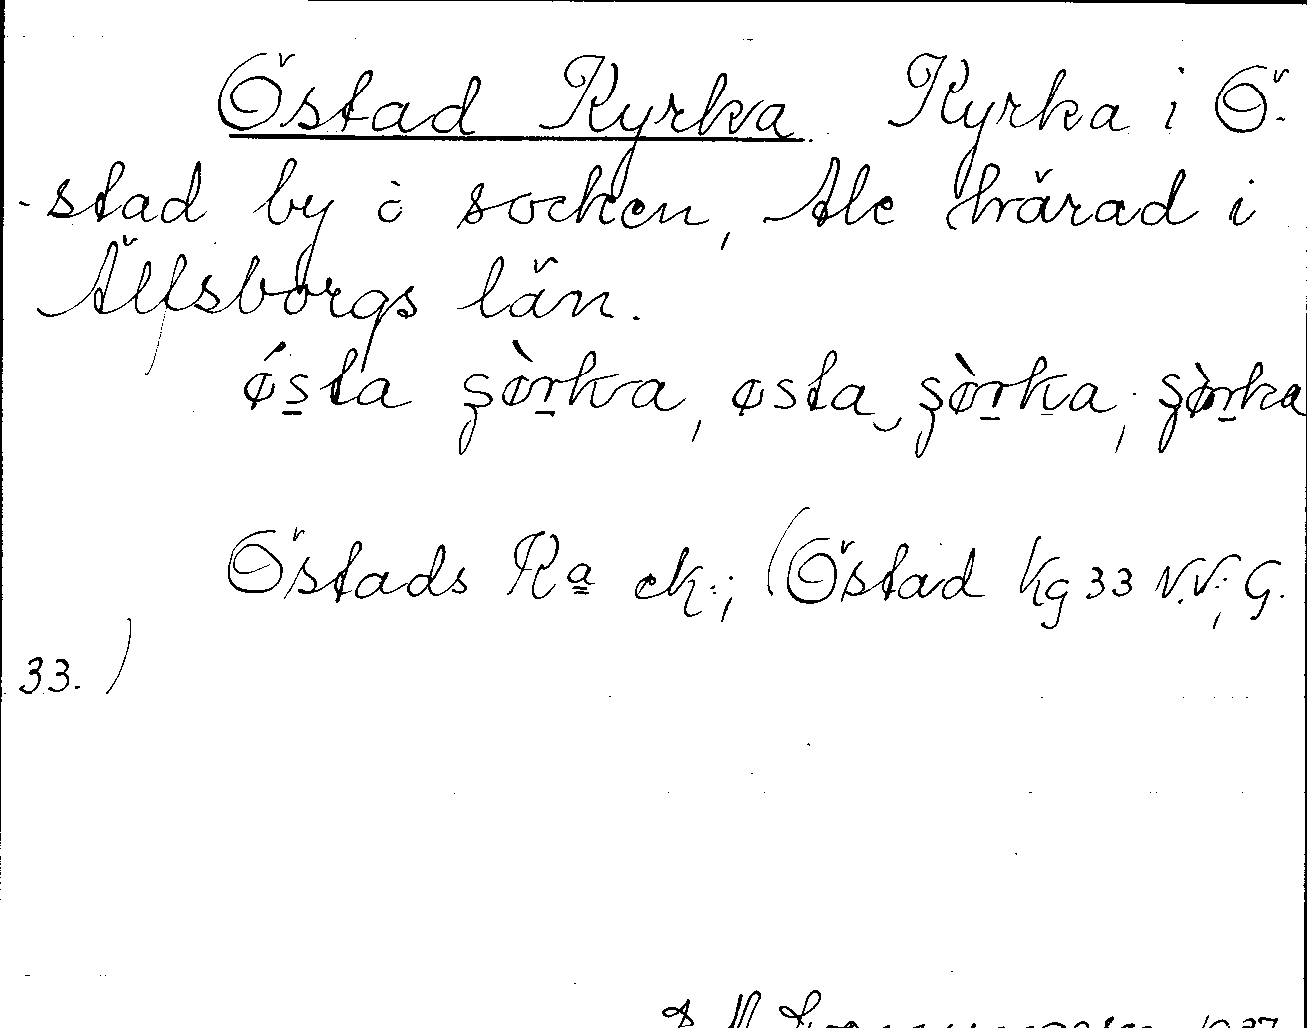 Östad Kyrka. Kyrka i Ö-
-stad by o socken, Ale härad i
Älfsborgs län.
ǿs̲ta şø̀r̲ka, østa‿şø̀r̲ka; şø̀r̲ka
Östads Ka ek.; (Östad Kg 33 N.V.; G.
33.)
1937